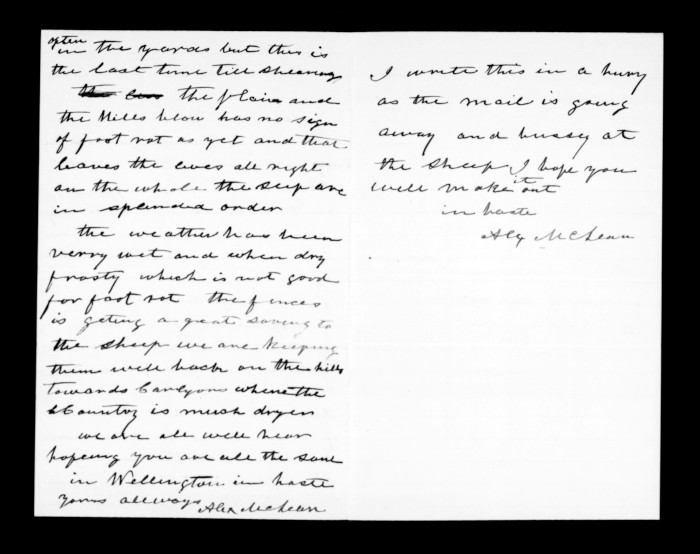 often
in the yards but this is
the last time till shearing
the plain and
the Hills blow has no sign
of foot rot as yet and that
leaves the ewes all right
on the whole the seep are
in splended order
the weather has been
verry wet and when dry
frosty which is not good
for foot rot the fences
is geting a great saving to
the sheep we are keeping
them well back on the hills
towards Carlyons where the
Country is much dryer
we are all well hear
hopeing you are all the same
in Wellington in haste
yours allways
Alex McLean
I wrote this in a hury
as the mail is going
away and bussy at
the sheep I hope you
well make it out
in haste
Alex McLean